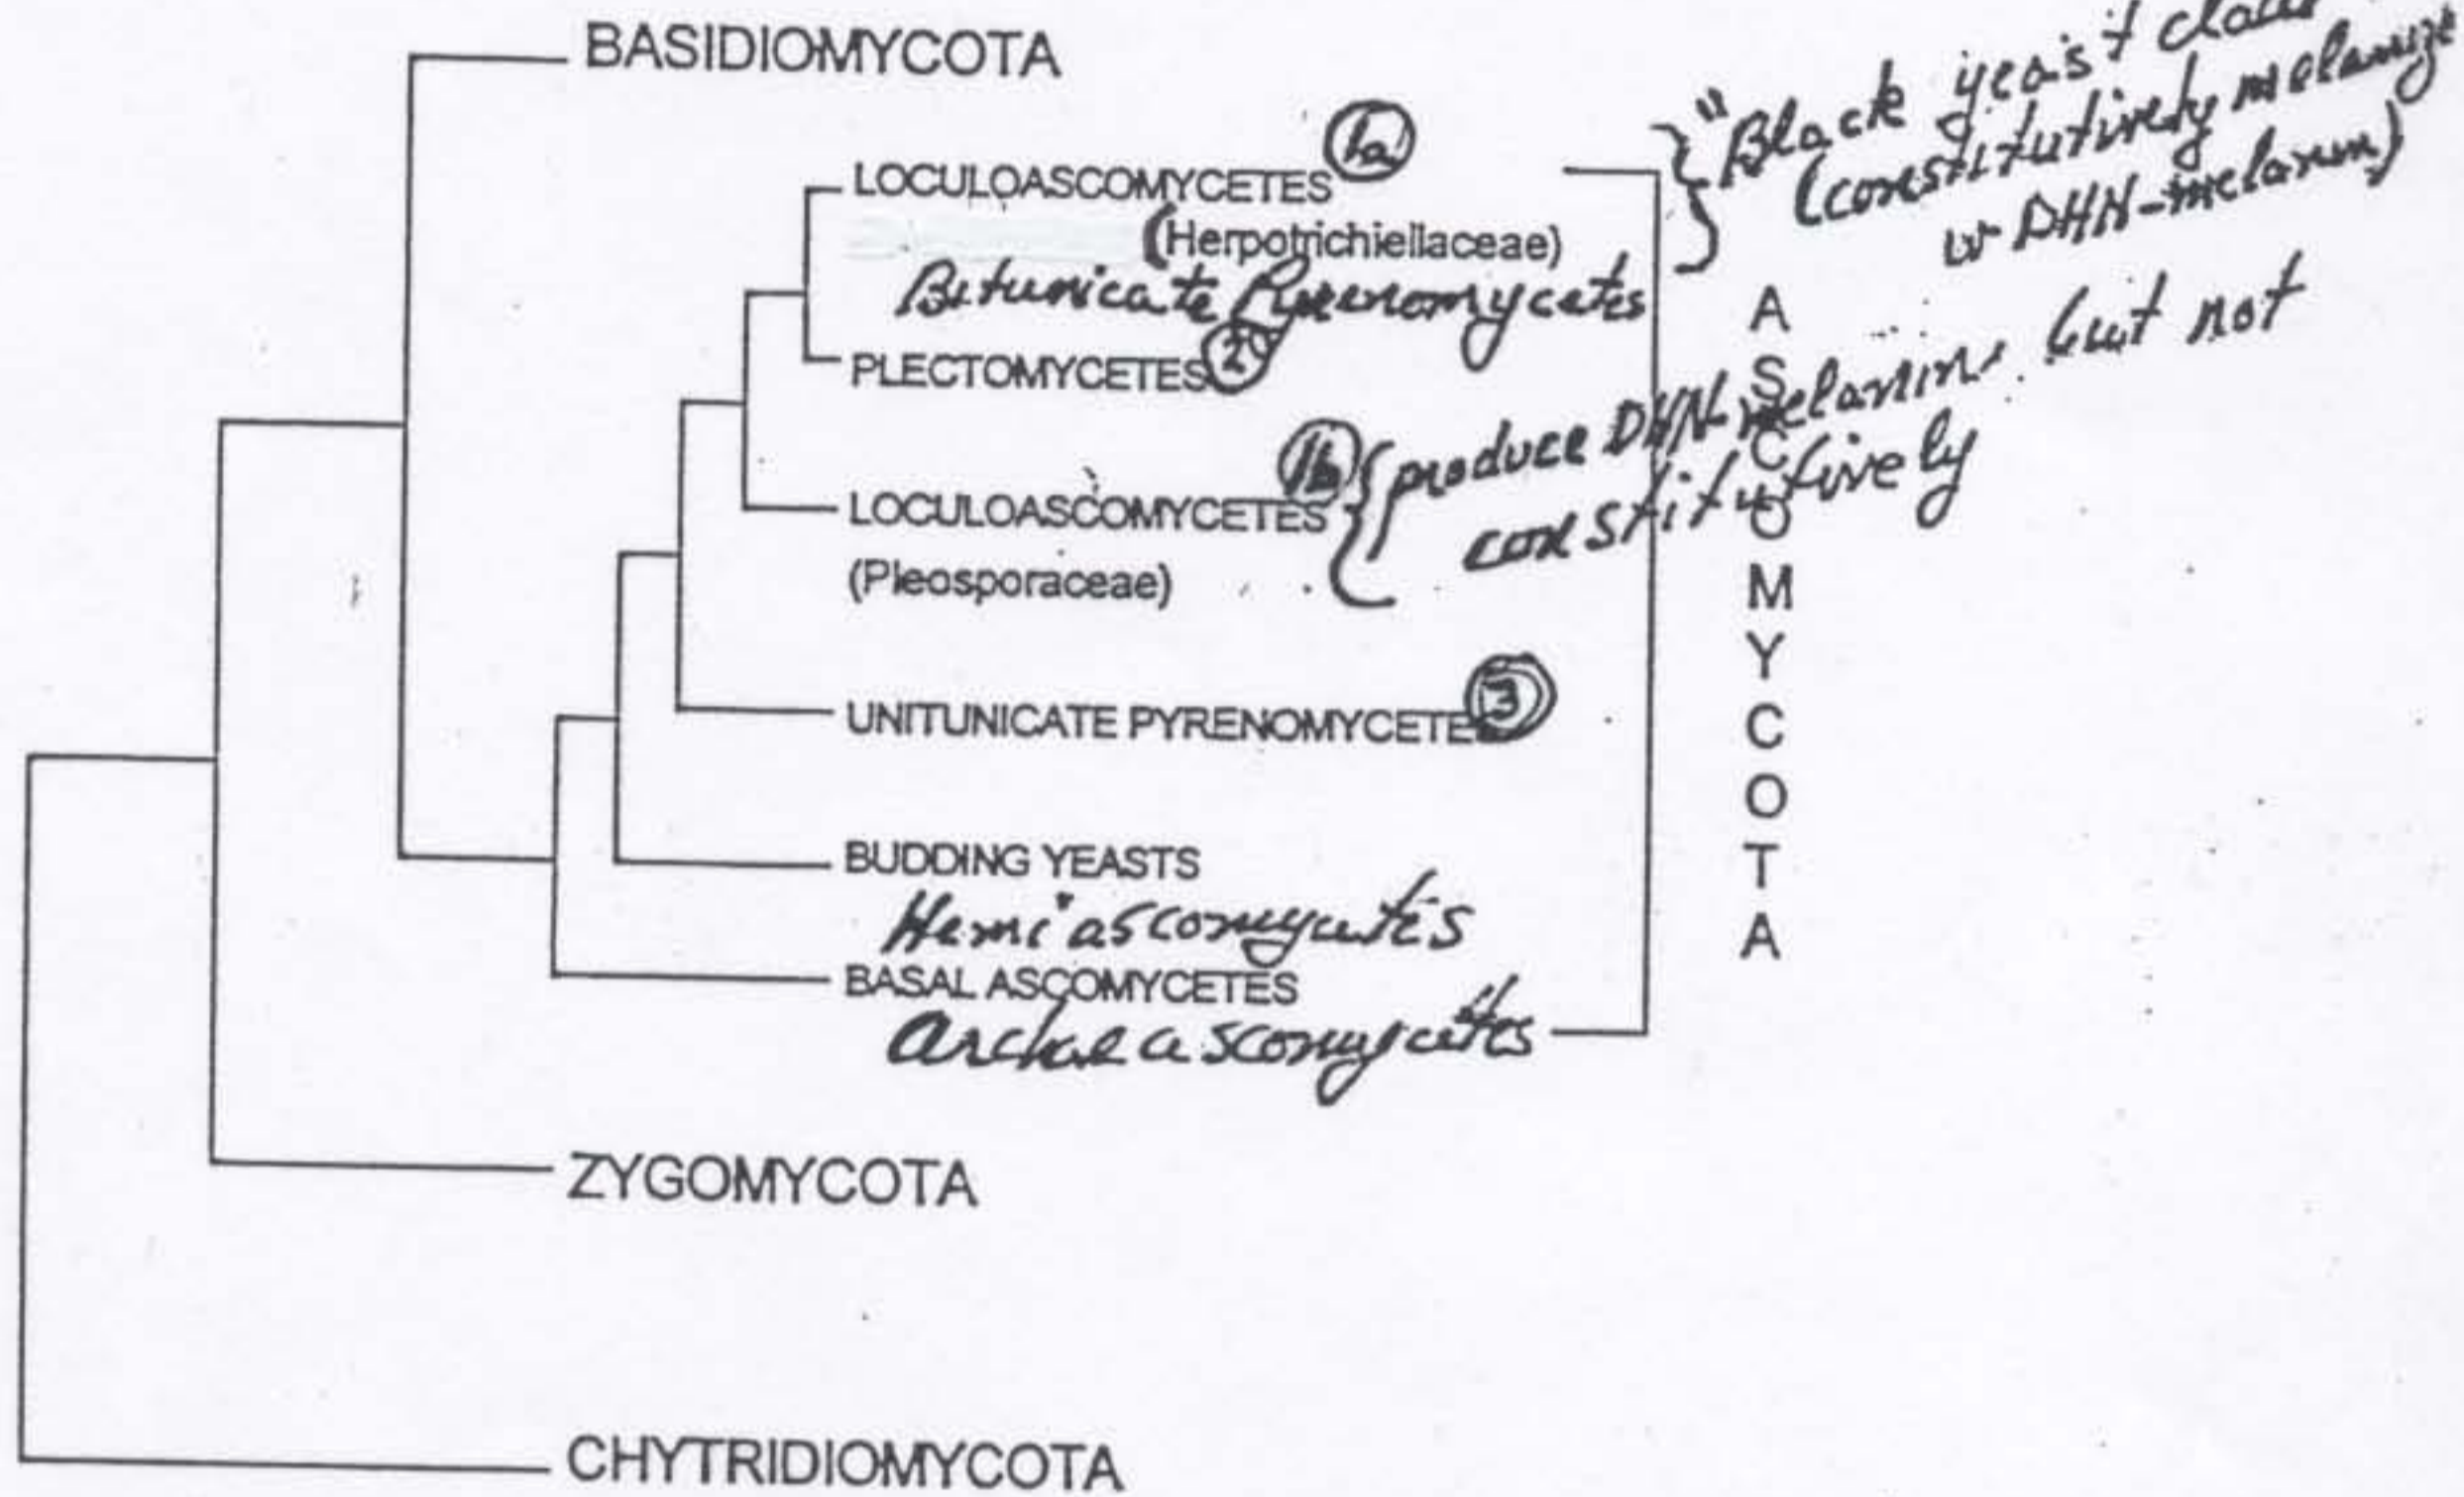 BASIDIOMYCOTA
LOCULOASCOMYCETES 1a
(Herpotrichiellaceae)
Bitunicate Pyrenomycetes
PLECTOMYCETES 2
LOCULOASCOMYCETES 1b
(Pleosporaceae)
UNITUNICATE PYRENOMYCETE 3
BUDDING YEASTS
Hemiascomycetes
BASAL ASCOMYCETES
Archaeascomycetes
ZYGOMYCOTA
CHYTRIDIOMYCOTA
"Black yeast
(constitutively melanize
w DHN-melanin)
produce DHN-melanin, but not
constitutively
ASCOMYCOTA